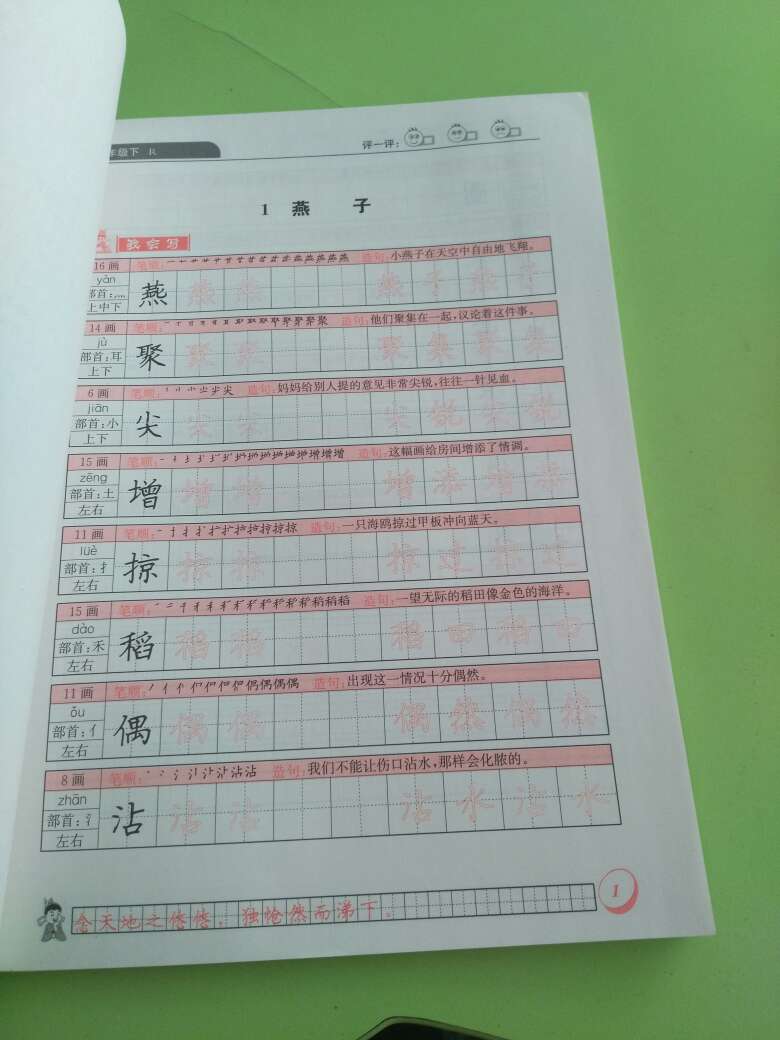 年级下 R
评一评：
1 燕 子
我会写
16 画 笔顺： 造句：小燕子在天空中自由地飞翔。
yàn
部首：灬
上中下
燕 燕 燕 燕 子 燕 子
14 画 笔顺： 造句：他们聚集在一起，议论着这件事。
jù
部首：耳
上下
聚 聚 聚 聚 集 聚 集
6 画 笔顺： 造句：妈妈给别人提的意见非常尖锐，往往一针见血。
jiān
部首：小
上下
尖 尖 尖 尖 锐 尖 锐
15 画 笔顺： 造句：这幅画给房间增添了情调。
zēng
部首：土
左右
增 增 增 增 添 增 添
11 画 笔顺： 造句：一只海鸥掠过甲板冲向蓝天。
lüè
部首：扌
左右
掠 掠 掠 掠 过 掠 过
15 画 笔顺： 造句：一望无际的稻田像金色的海洋。
dào
部首：禾
左右
稻 稻 稻 稻 田 稻 田
11 画 笔顺： 造句：出现这一情况十分偶然。
ǒu
部首：亻
左右
偶 偶 偶 偶 然 偶 然
8 画 笔顺： 造句：我们不能让伤口沾水，那样会化脓的。
zhān
部首：氵
左右
沾 沾 沾 沾 水 沾 水
念天地之悠悠，独怆然而涕下。
1